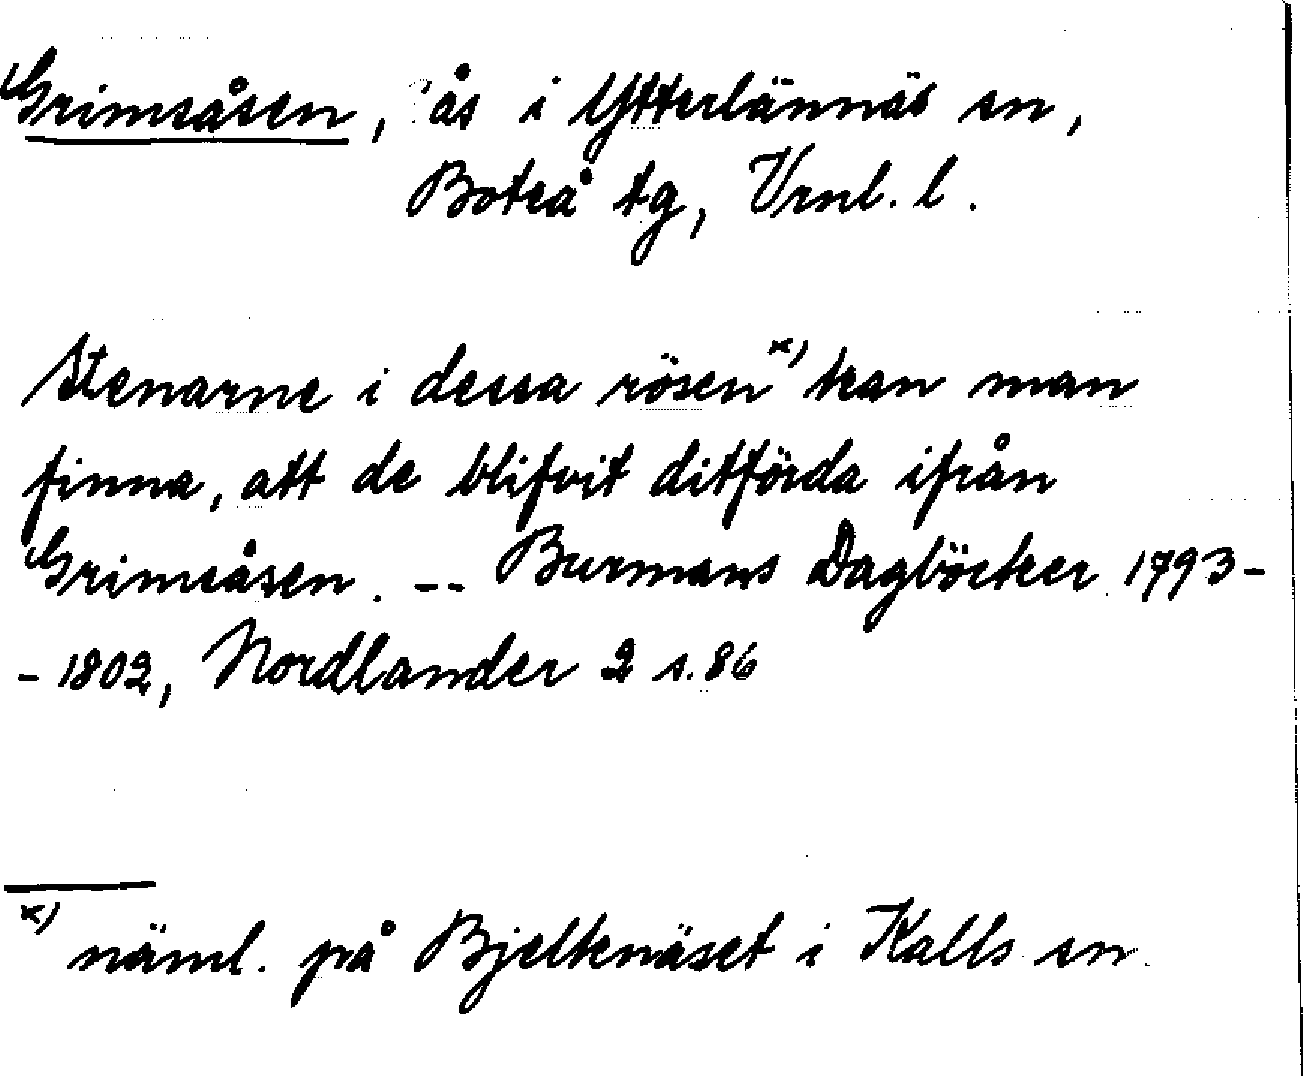 Grimsåsen, ås i Ytterlännäs sn,
Boteå tg, Vrnl. l.
Stenarne i dessa rösen x) kan man
finna, att de blifvit ditförda ifrån
Grimsåsen. -- Burmans Dagböcker 1793-
- 1802, Nordlander 2 s. 86
x) näml. på Bjelkenäset i Kalls sn.